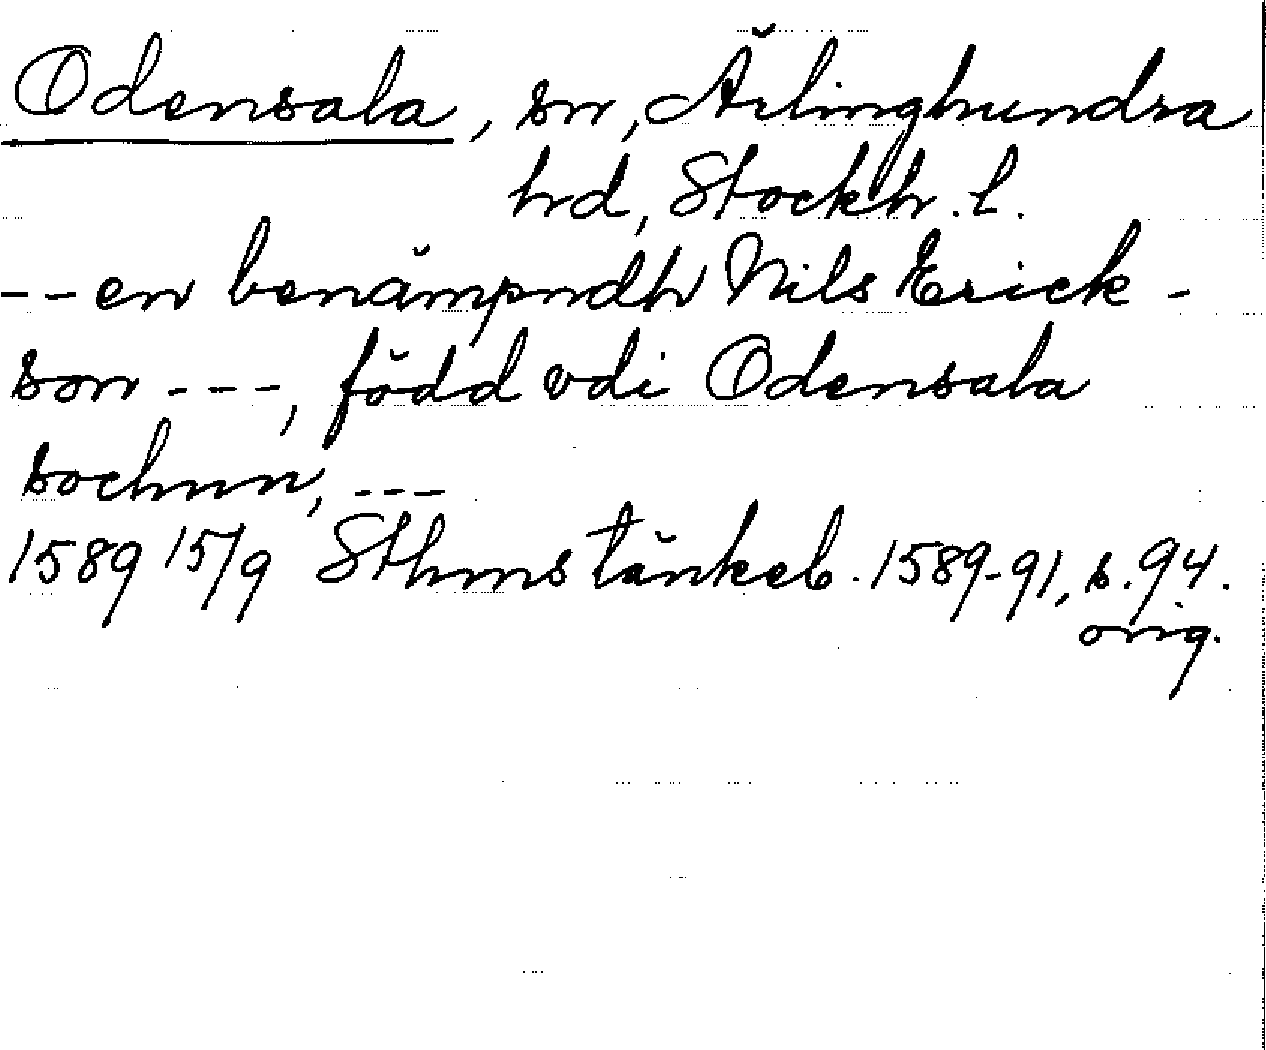 Odensala, sn, Ärlinghundra
hd, Stockh. l.
--en benämpndh Nils Erick-
son ---, född vdi Odensala
sochnn, ---
1589 15/9 Sthms tänkeb. 1589-91, s. 94.
orig.